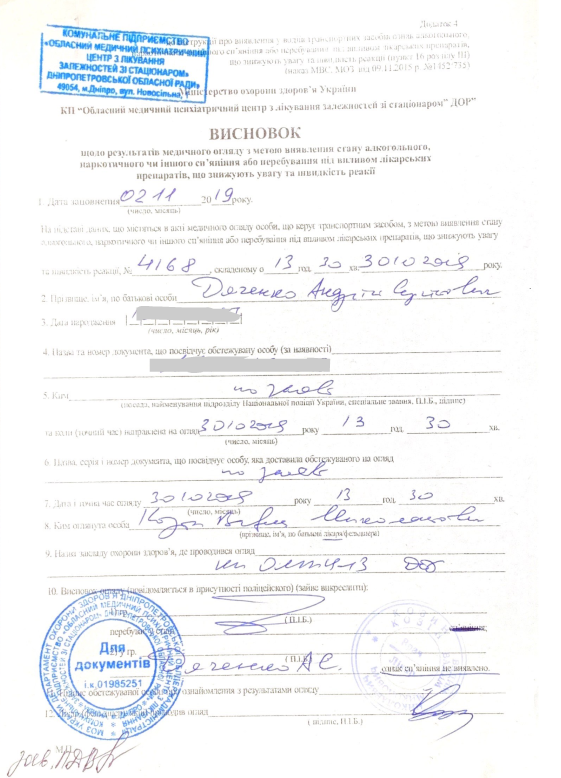 Додаток 4
КОМУНАЛЬНЕ ПІДПРИЄМСТВО
«ОБЛАСНИЙ МЕДИЧНИЙ ПСИХІАТРИЧНИЙ
ЦЕНТР З ЛІКУВАННЯ
ЗАЛЕЖНОСТЕЙ ЗІ СТАЦІОНАРОМ»
ДНІПРОПЕТРОВСЬКОЇ ОБЛАСНОЇ РАДИ»
49054, м.Дніпро, вул. Новосільна,
про виявлення у водіїв транспортних засобів ознак алкогольного,
сп'яніння або перебування під впливом лікарських препаратів,
що знижують увагу та швидкість реакції (пункт 16 розділу III)
(наказ МВС, МОЗ від 09.11.2015 р. №1452/735)
Міністерство охорони здоров'я України
КП "Обласний медичний психіатричний центр з лікування залежностей зі стаціонаром" ДОР"
ВИСНОВОК
щодо результатів медичного огляду з метою виявлення стану алкогольного,
наркотичного чи іншого сп'яніння або перебування під впливом лікарських
препаратів, що знижують увагу та швидкість реакції
1. Дата заповнення 02 11 2019 року.
(число, місяць)
На підставі даних, що містяться в акті медичного огляду особи, що керує транспортним засобом, з метою виявлення стану
алкогольного, наркотичного чи іншого сп'яніння або перебування під впливом лікарських препаратів, що знижують увагу
та швидкість реакції, № 4168, складеному о 13 год. 30 хв. 30 10 2019 року
2. Прізвище, ім'я, по батькові особи Дяченко Андрій
3. Дата народження
(число, місяць, рік)
4. Назва та номер документа, що посвідчує обстежувану особу (за наявності)
5. Ким по заяві
(посада, найменування підрозділу Національної поліції України, спеціальне звання, П.І.Б., підпис)
та коли (точний час) направлена на огляд 30 10 2019 року 13 год. 30 хв.
(число, місяць)
6. Назва, серія і номер документа, що посвідчує особу, яка доставила обстежуваного на огляд
по заяві
7. Дата і точний час огляду 30 10 2019 року 13 год. 30 хв.
(число, місяць)
8. Ким оглянута особа Миколайович
(прізвище, ім'я, по батькові лікаря/фельдшера)
9. Назва закладу охорони здоров'я, де проводився огляд
10. Висновок огляду (повідомляється в присутності поліцейського) (зайве викреслити):
1) гр.
( П.І.Б.)
перебуває
( П.І.Б.)
2) у гр. Дяченко А.С. ознак сп'яніння не виявлено.
( П.І.Б.)
11. Підпис обстежуваної особи про ознайомлення з результатами огляду
12. проводив огляд
( підпис, П.І.Б.)
М.П.
Для
документів
і.к.01985251